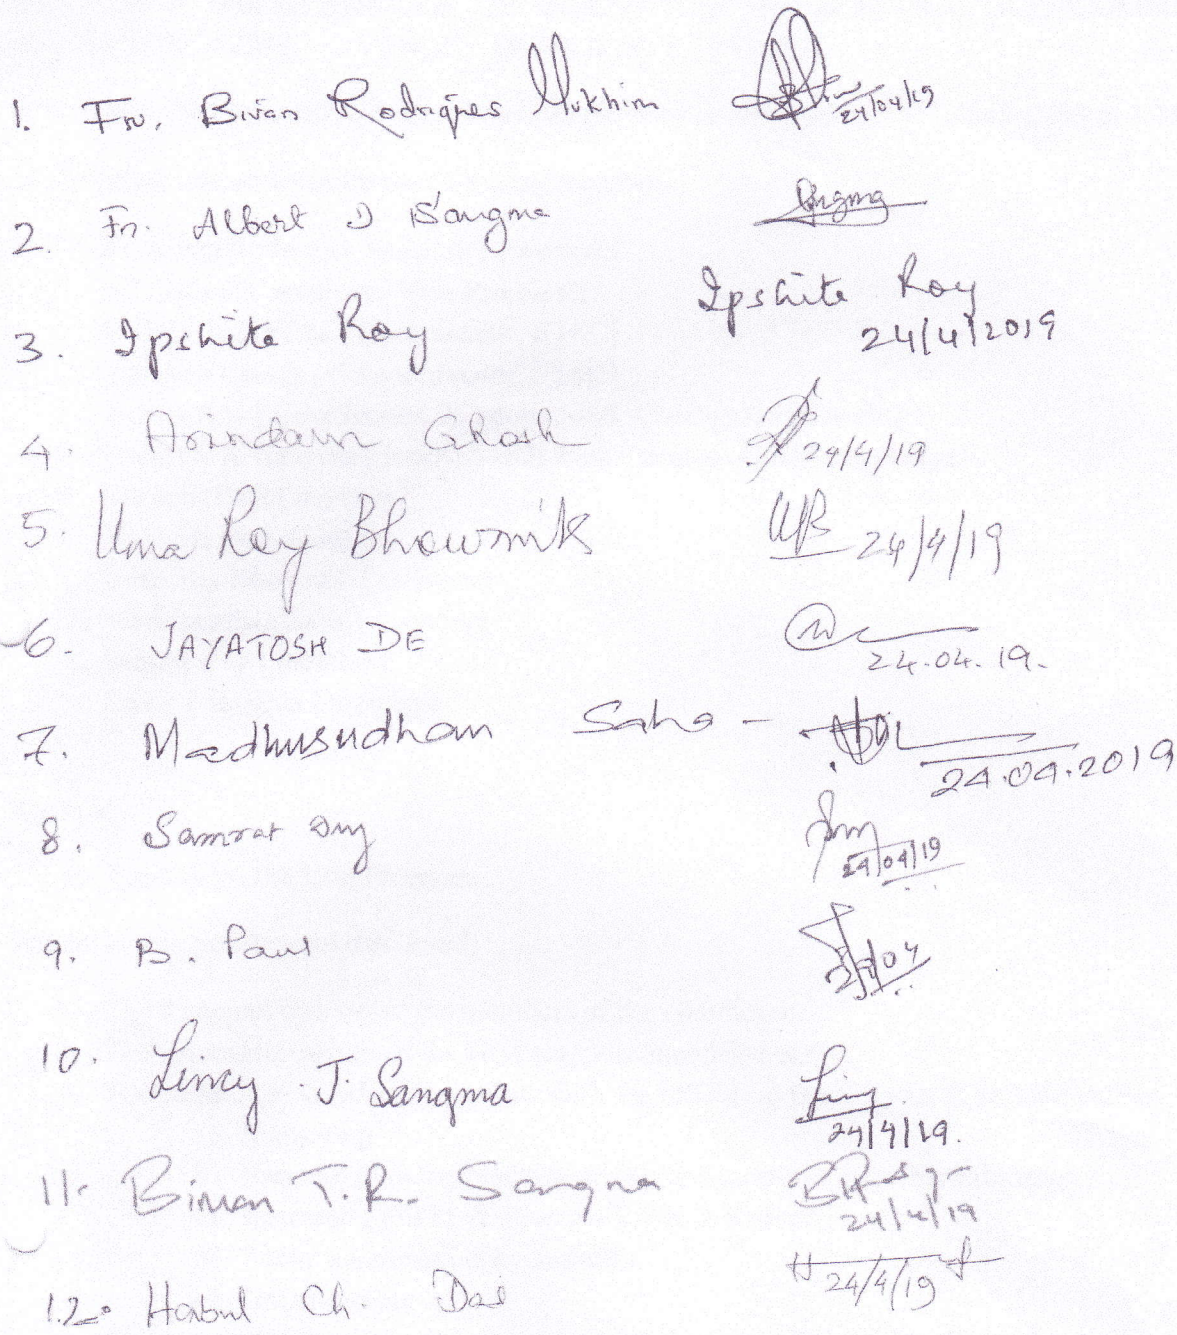 1. Fr. Bivan Rodriques Mukhim 24/04/19
2. Fr. Albert D Sangma Sangma
3. Ipshita Roy Ipshita Roy
24/4/2019
4. Arindam Ghosh 24/4/19
5. Uma Roy Bhowmik UB 24/4/19
6. JAYATOSH DE
24.04.19.
7. Madhusudhan Saha -
24.04.2019
8. Samrat Dey
24/04/19
9. B. Paul
10. Lincy J. Sangma
24/4/19.
11. Biman T.R. Sangma
24/4/19
12. Habul Ch. Das 24/4/19